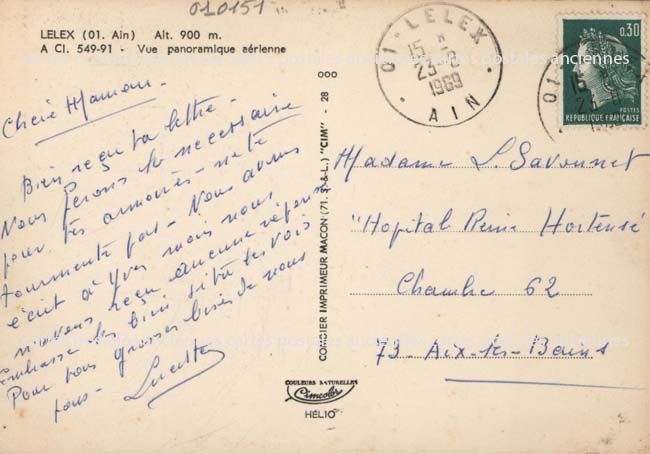 010151
LELEX (01. Ain) Alt. 900 m.
A Cl. 549-91 - Vue panoramique aérienne
Chère Maman -
Bien reçu ta lettre -
Nous ferons le nécessaire
pour tes armoires - ne te
tourmente pas - Nous avons
écrit à Yves mais nous
n'avons reçu aucune réponse
embrasse les bien si tu les vois
Pour toi grosses bises de nous
tous - Lucette
COMBIER IMPRIMEUR MACON (71. S.-&-L.) "CIM" - 28 000
COULEURS NATURELLES
Cimcolor
HÉLIO
01 - LELEX
15 H
23 - 8
1969
AIN
0,30
POSTES
REPUBLIQUE FRANÇAISE
Madame S. Savonnet
"Hopital Reine Hortense
Chambre 62
73 - Aix-les-Bains
cartes postales anciennes